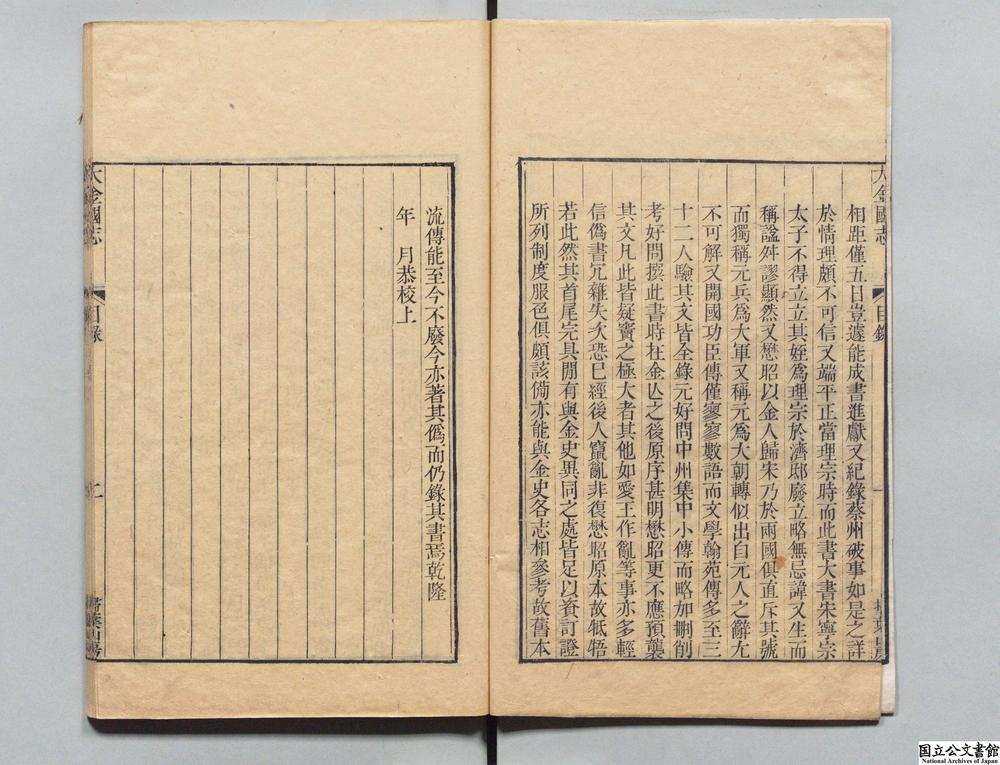 大金國志
目錄
相距僅五日豈遽能成書進獻又紀錄蔡州破事如是之詳
於情理頗不可信又端平正當理宗時而此書大書宋寧宗
太子不得立立其姪爲理宗於濟邸廢立略無忌諱又生而
稱謚舛謬顯然又懋昭以金人歸宋乃於兩國俱直斥其號
而獨稱元兵爲大軍又稱元爲大朝轉似出自元人之辭尤
不可解又開國功臣傳僅寥寥數語而文學翰苑傳多至三
十二人驗其文皆全錄元好問中州集中小傳而略加刪削
考好問撰此書時在金亾之後原序甚明懋昭更不應預襲
其文凡此皆疑竇之極大者其他如愛王作亂等事亦多輕
信僞書冗雜失次恐巳經後人竄亂非復懋昭原本故牴牾
若此然其首尾完具閒有與金史異同之處皆足以資訂證
所列制度服色俱頗該備亦能與金史各志相參考故舊本
流傳能至今不廢今亦著其僞而仍錄其書焉乾隆
年　月恭校上
大金國志
目錄
二
掃葉山房
国立公文書館
National Archives of Japan